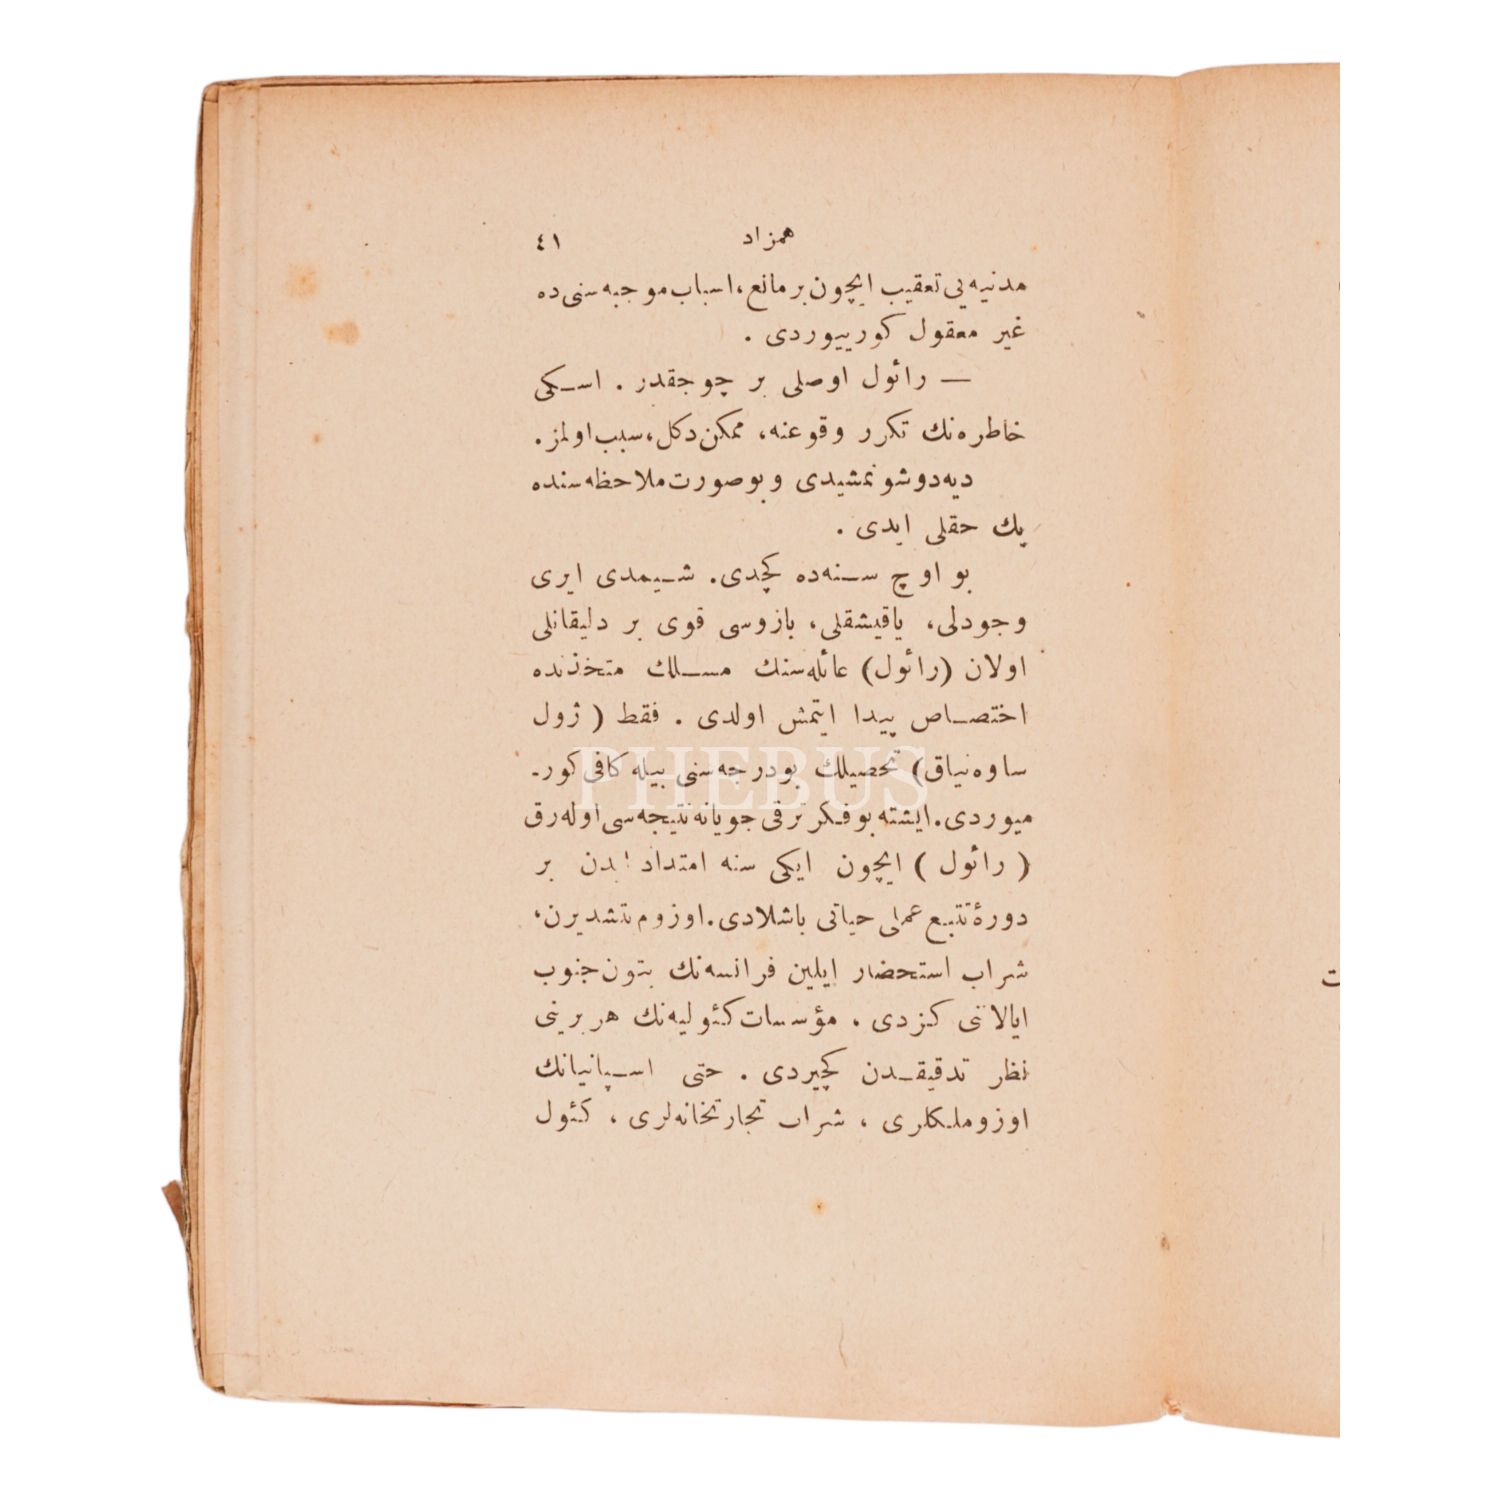 همزاد ٤١
مدنیه‌یی تعقیب ایچون بر مانع، اسباب موجبه‌سنی ده
غیر معقول کورییوردی .
— رائول اوصلی بر چوجقدر . اسکی
خاطره‌نك تکرر وقوعنه، ممکن دکل، سبب اولمز.
دیه دوشونمشیدی و بو صورت ملاحظه‌سنده
پك حقلی ایدی .
بو اوچ سنه‌ده کچدی. شیمدی ایری
وجودلی، یاقیشقلی، بازوسی قوی بر دلیقانلی
اولان (رائول) عائله‌سنك مسلك متخذنده
اختصاص پیدا ایتمش اولدی . فقط ( ژول
ساوه‌نیاق) تحصیلك بو درجه‌سنی بیله کافی کور-
میوردی. ایشته بو فکر ترقی جویانه نتیجه‌سی اوله‌رق
( رائول ) ایچون ایکی سنه امتداد ایدن بر
دورهٔ تتبع عملی حیاتی باشلادی. اوزوم یتشدیرن،
شراب استحضار ایلین فرانسه‌نك بتون جنوب
ایالاتنی کزدی . مؤسسات کئولیه‌نك هر برینی
نظر تدقیقدن کچیردی . حتی اسپانیانك
اوزوملکلری ، شراب تجارتخانه‌لری ، کئول
ت
PHEBUS